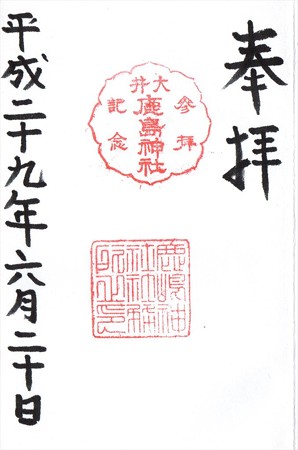 奉拝
大井
鹿島神社
参拝
記念
鹿嶋神
社社務
所之印
平成二十九年六月二十日